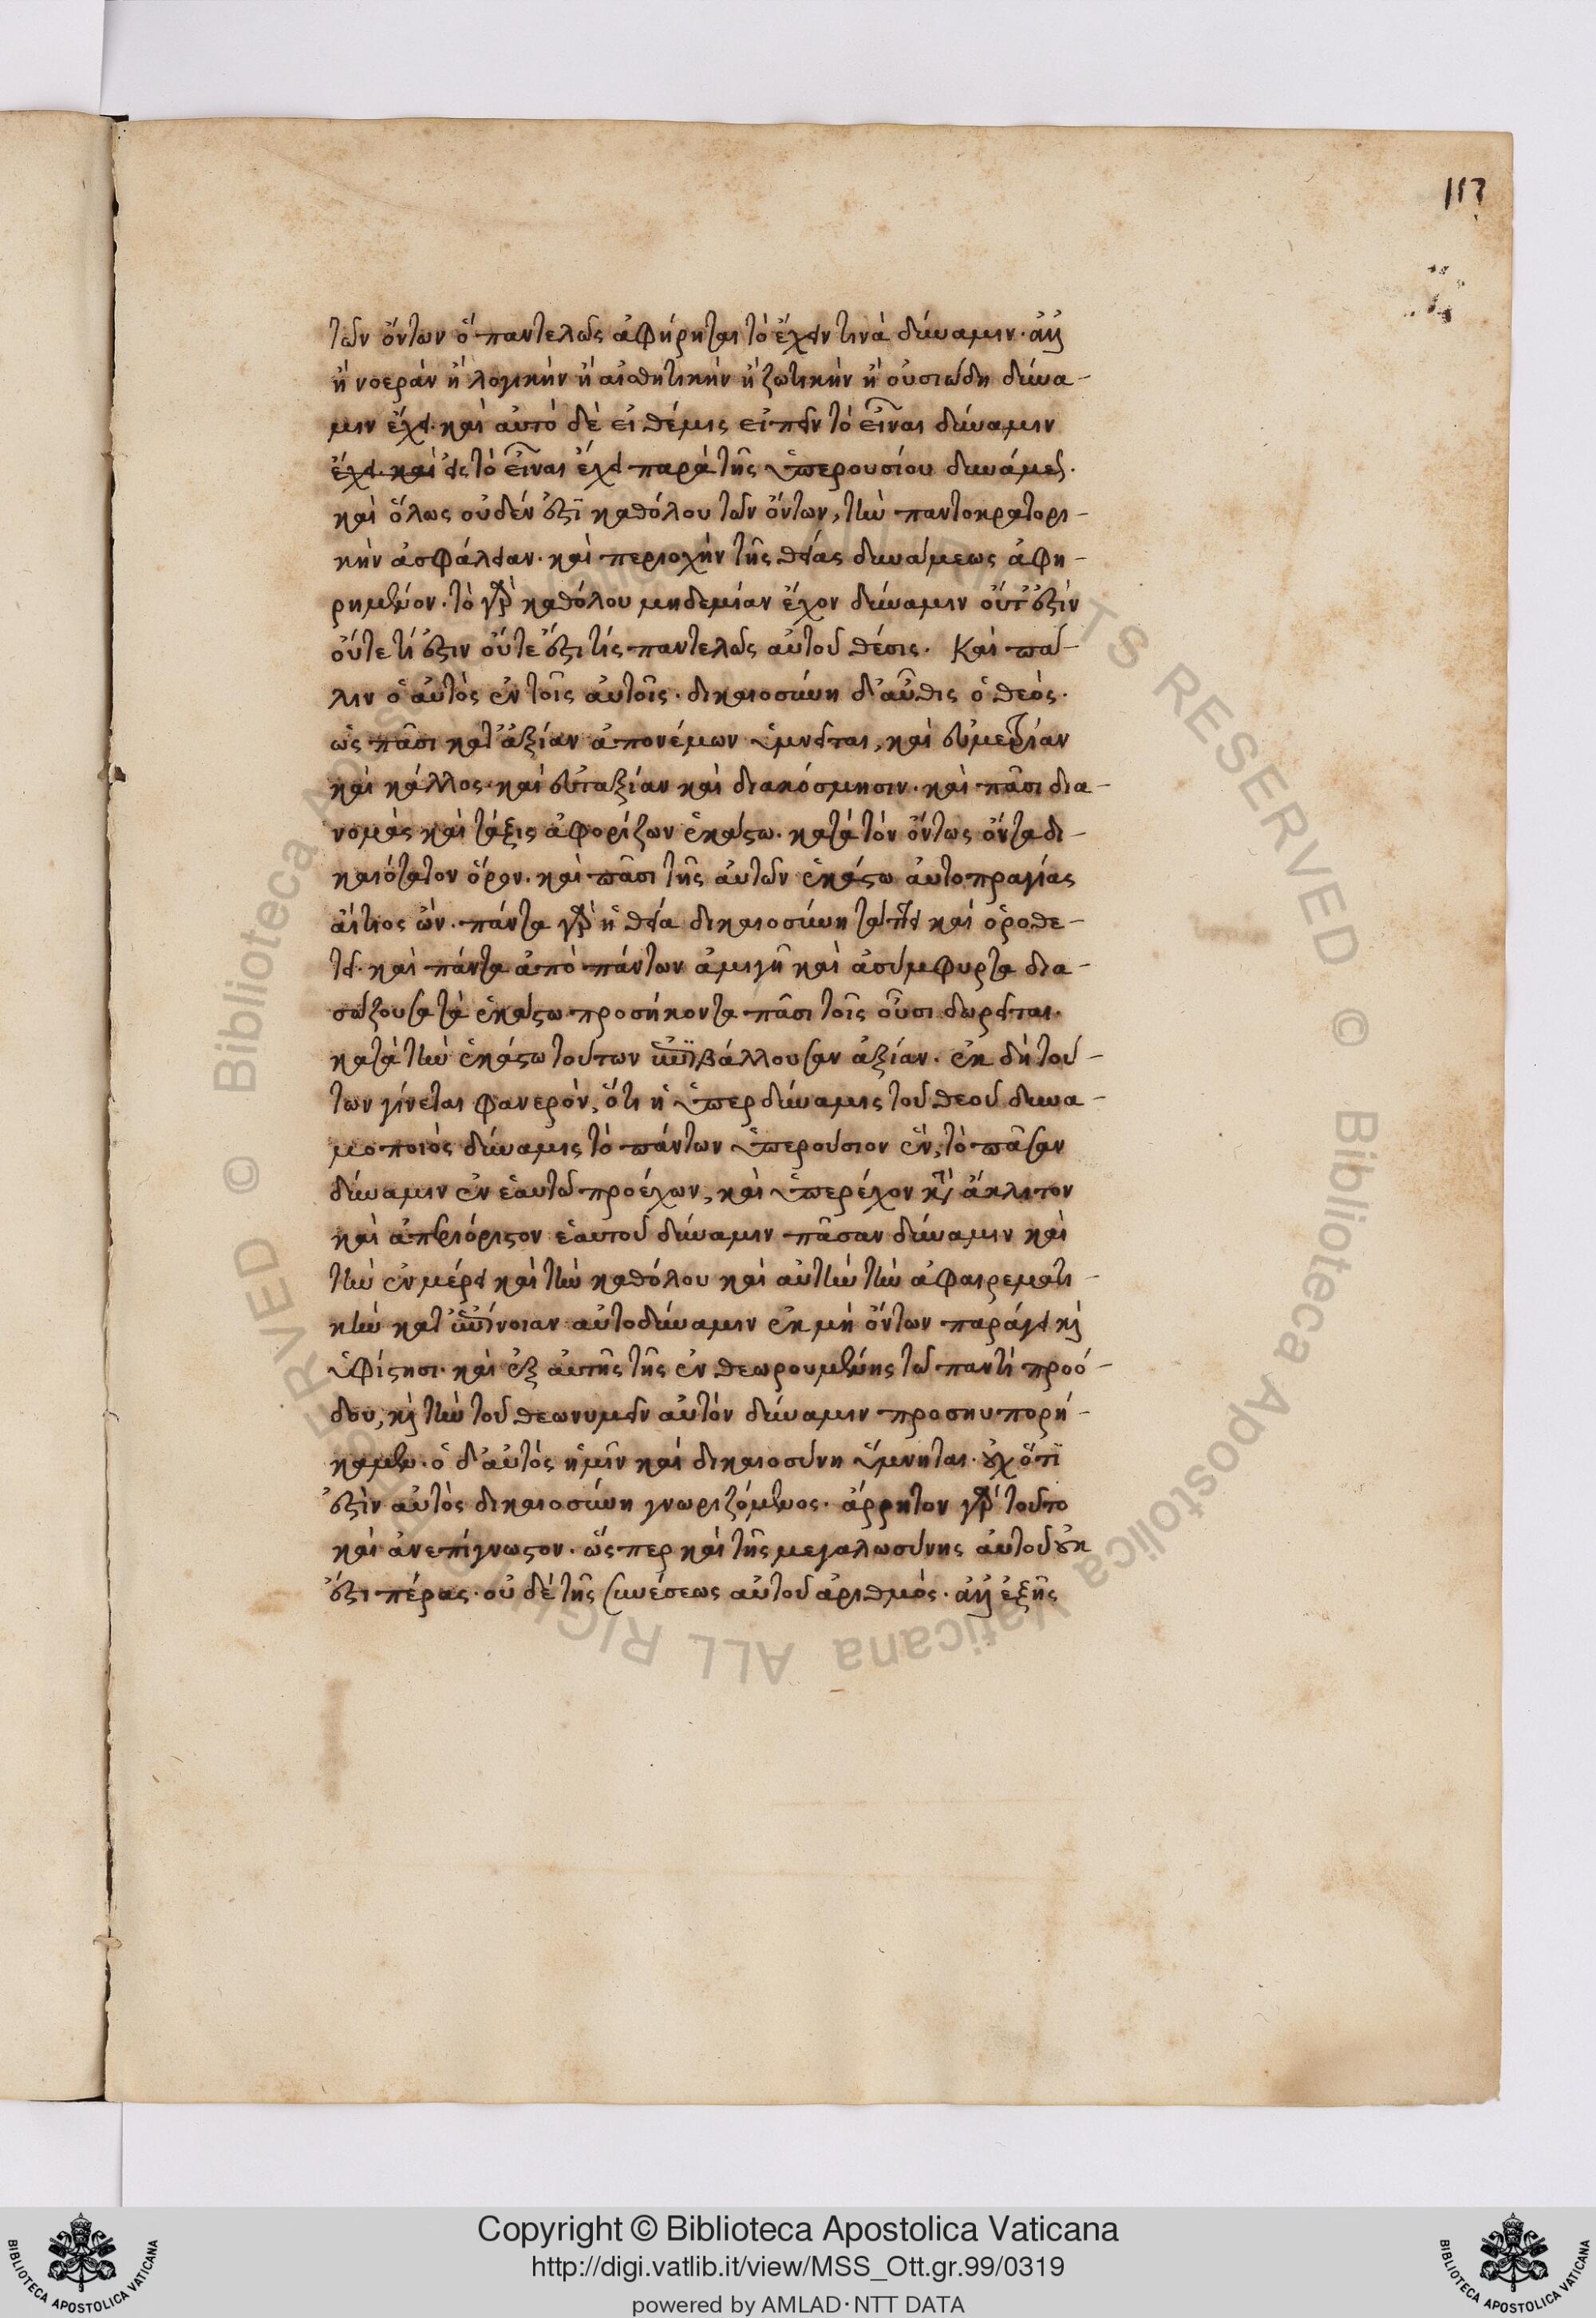 157
τῶν ὄντων ὃ παντελῶς ἀφήρηται τὸ ἔχειν τινὰ δύναμιν· ἀλλ᾽
ἢ νοερὰν ἢ λογικὴν ἢ αἰσθητικὴν ἢ ζωτικὴν ἢ οὐσιώδη δύνα-
μιν ἔχει· καὶ αὐτὸ δὲ εἰ θέμις εἰπεῖν τὸ εἶναι δύναμιν
ἔχει· καὶ εἰς τὸ εἶναι ἔχει παρὰ τῆς ὑπερουσίου δυνάμεως.
καὶ ὅλως οὐδέν ἐστι καθόλου τῶν ὄντων, τὴν παντοκρατορι-
κὴν ἀσφάλειαν· καὶ περιοχὴν τῆς θείας δυνάμεως ἀφη-
ρημένον· τὸ γὰρ καθόλου μηδεμίαν ἔχον δύναμιν οὔτ᾽ ἐστὶν
οὔτε τί ἐστιν οὔτε ἔστι τίς παντελῶς αὐτοῦ θέσις. Καὶ πά-
λιν ὁ αὐτὸς ἐν τοῖς αὐτοῖς· δικαιοσύνη δ᾽ αὖθις ὁ θεός·
ὡς πᾶσι κατ᾽ ἀξίαν ἀπονέμων ὑμνεῖται, καὶ εὐμετρίαν
καὶ κάλλος· καὶ εὐταξίαν καὶ διακόσμησιν· καὶ πᾶσι δια-
νομὰς καὶ τάξις ἀφορίζων ἑκάστω· κατὰ τὸν ὄντως ὄντα δι-
καιότατον ὅρον· καὶ πᾶσι τῆς αὐτῶν ἑκάστω αὐτοπραγίας
αἴτιος ὤν· πάντα γὰρ ἡ θεία δικαιοσύνη τάττει καὶ ὁροθε-
τεῖ· καὶ πάντα ἀπὸ πάντων ἀμιγῆ καὶ ἀσύμφυρτα δια-
σώζουσα τὰ ἑκάστω προσήκοντα πᾶσι τοῖς οὖσι δωρεῖται·
κατὰ τὴν ἑκάστω τούτων ἐπιβάλλουσαν ἀξίαν. ἐκ δὴ τού-
των γίνεται φανερόν, ὅτι ἡ ὑπερδύναμις τοῦ θεοῦ δυνα-
μοποιὸς δύναμις τὸ πάντων ὑπερούσιον ἕν, τὸ πᾶσαν
δύναμιν ἐν ἑαυτῶ προέχων, καὶ ὑπερέχον κατὰ ἄκλιτον
καὶ ἀπεριόριστον ἑαυτοῦ δύναμιν πᾶσαν δύναμιν καὶ
τὴν ἐν μέρει καὶ τὴν καθόλου καὶ αὐτὴν τὴν ἀφαιρεματι-
κὴν κατ᾽ ἐπίνοιαν αὐτοδύναμιν ἐκ μὴ ὄντων παράγει καὶ
ὑφίστησι· καὶ ἐξ αὐτῆς τῆς ἐνθεωρουμένης τῶ παντὶ προό-
δου, καὶ τὴν τοῦ θεωνυμεῖν αὐτὸν δύναμιν προσηυπορή-
καμεν. ὁ δ᾽ αὐτὸς ἡμῖν καὶ δικαιοσύνη ὕμνηται· οὐχ ὅτι
ἐστὶν αὐτὸς δικαιοσύνη γνωριζόμενος· ἄρρητον γὰρ τοῦτο
καὶ ἀνεπίγνωστον· ὥσπερ καὶ τῆς μεγαλωσύνης αὐτοῦ οὐκ
ἔστι πέρας· οὐδὲ τῆς συνέσεως αὐτοῦ ἀριθμός· ἀλλ᾽ ἐξῆς
© Biblioteca Apostolica Vaticana ALL RIGHTS RESERVED
Copyright © Biblioteca Apostolica Vaticana
http://digi.vatlib.it/view/MSS_Ott.gr.99/0319
powered by AMLAD·NTT DATA
BIBLIOTECA APOSTOLICA VATICANA
BIBLIOTECA APOSTOLICA VATICANA